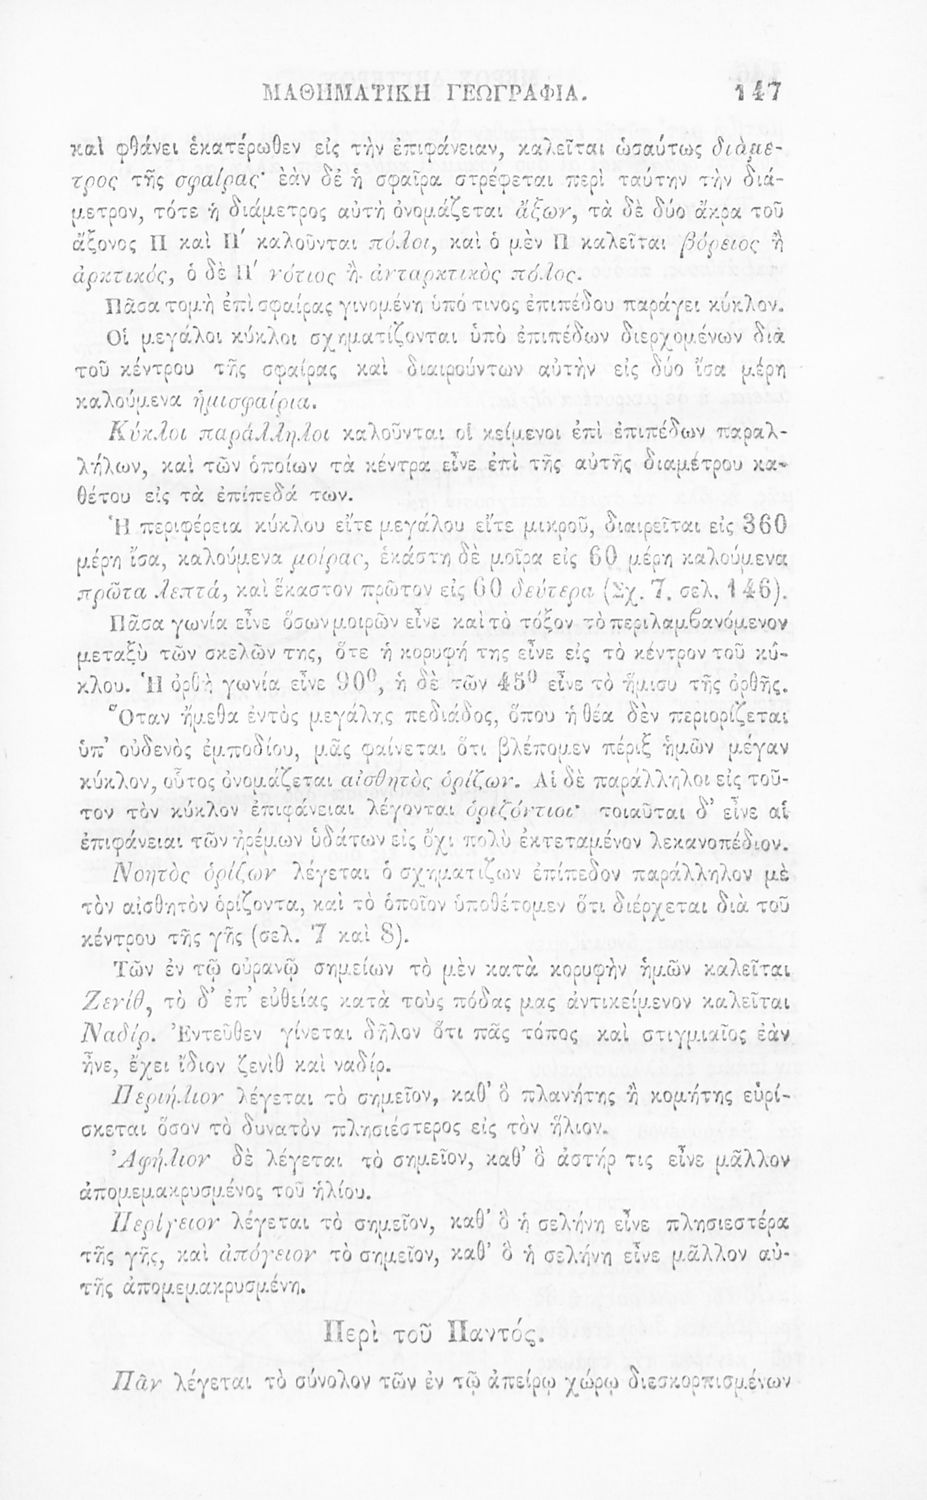 ΜΑΘΗΜΑΤΙΚΗ ΓΕΩΓΡΑΦΙΑ. 147
καὶ φθάνει ἑκατέρωθεν εἰς τὴν ἐπιφάνειαν, καλεῖται ὡσαύτως διάμε-
τρος τῆς σφαίρας· ἐὰν δὲ ἡ σφαῖρα στρέφεται περὶ ταύτην τὴν διά-
μετρον, τότε ἡ διάμετρος αὐτὴ ὀνομάζεται ἄξων, τὰ δὲ δύο ἄκρα τοῦ
ἄξονος Π καὶ Π′ καλοῦνται πόλοι, καὶ ὁ μὲν Π καλεῖται βόρειος ἢ
ἀρκτικός, ὁ δὲ Π′ νότιος ἢ ἀνταρκτικὸς πόλος.
Πᾶσα τομὴ ἐπὶ σφαίρας γινομένη ὑπό τινος ἐπιπέδου παράγει κύκλον.
Οἱ μεγάλοι κύκλοι σχηματίζονται ὑπὸ ἐπιπέδων διερχομένων διὰ
τοῦ κέντρου τῆς σφαίρας καὶ διαιρούντων αὐτὴν εἰς δύο ἴσα μέρη
καλούμενα ἡμισφαίρια.
Κύκλοι παράλληλοι καλοῦνται οἱ κείμενοι ἐπὶ ἐπιπέδων παραλ-
λήλων, καὶ τῶν ὁποίων τὰ κέντρα εἶνε ἐπὶ τῆς αὐτῆς διαμέτρου κα-
θέτου εἰς τὰ ἐπίπεδά των.
Ἡ περιφέρεια κύκλου εἴτε μεγάλου εἴτε μικροῦ, διαιρεῖται εἰς 360
μέρη ἴσα, καλούμενα μοίρας, ἑκάστη δὲ μοῖρα εἰς 60 μέρη καλούμενα
πρῶτα λεπτά, καὶ ἕκαστον πρῶτον εἰς 60 δεύτερα (Σχ. 7. σελ. 146).
Πᾶσα γωνία εἶνε ὅσων μοιρῶν εἶνε καὶ τὸ τόξον τὸ περιλαμβανόμενον
μεταξὺ τῶν σκελῶν της, ὅτε ἡ κορυφή της εἶνε εἰς τὸ κέντρον τοῦ κύ-
κλου. Ἡ ὀρθὴ γωνία εἶνε 90⁰, ἡ δὲ τῶν 45⁰ εἶνε τὸ ἥμισυ τῆς ὀρθῆς.
Ὅταν ἤμεθα ἐντὸς μεγάλης πεδιάδος, ὅπου ἡ θέα δὲν περιορίζεται
ὑπ' οὐδενὸς ἐμποδίου, μᾶς φαίνεται ὅτι βλέπομεν πέριξ ἡμῶν μέγαν
κύκλον, οὗτος ὀνομάζεται αἰσθητὸς ὁρίζων. Αἱ δὲ παράλληλοι εἰς τοῦ-
τον τὸν κύκλον ἐπιφάνειαι λέγονται ὁριζόντιοι· τοιαῦται δ' εἶνε αἱ
ἐπιφάνειαι τῶν ἠρέμων ὑδάτων εἰς ὄχι πολὺ ἐκτεταμένον λεκανοπέδιον.
Νοητὸς ὁρίζων λέγεται ὁ σχηματίζων ἐπίπεδον παράλληλον μὲ
τὸν αἰσθητὸν ὁρίζοντα, καὶ τὸ ὁποῖον ὑποθέτομεν ὅτι διέρχεται διὰ τοῦ
κέντρου τῆς γῆς (σελ. 7 καὶ 8).
Τῶν ἐν τῷ οὐρανῷ σημείων τὸ μὲν κατὰ κορυφὴν ἡμῶν καλεῖται
Ζενίθ, τὸ δ' ἐπ' εὐθείας κατὰ τοὺς πόδας μας ἀντικείμενον καλεῖται
Ναδίρ. Ἐντεῦθεν γίνεται δῆλον ὅτι πᾶς τόπος καὶ στιγμιαῖος ἐὰν
ἦνε, ἔχει ἴδιον ζενὶθ καὶ ναδίρ.
Περιήλιον λέγεται τὸ σημεῖον, καθ' ὃ πλανήτης ἢ κομήτης εὑρί-
σκεται ὅσον τὸ δυνατὸν πλησιέστερος εἰς τὸν ἥλιον.
Ἀφήλιον δὲ λέγεται τὸ σημεῖον, καθ' ὃ ἀστήρ τις εἶνε μᾶλλον
ἀπομεμακρυσμένος τοῦ ἡλίου.
Περίγειον λέγεται τὸ σημεῖον, καθ' ὃ ἡ σελήνη εἶνε πλησιεστέρα
τῆς γῆς, καὶ ἀπόγειον τὸ σημεῖον, καθ' ὃ ἡ σελήνη εἶνε μᾶλλον αὐ-
τῆς ἀπομεμακρυσμένη.
Περὶ τοῦ Παντός.
Πᾶν λέγεται τὸ σύνολον τῶν ἐν τῷ ἀπείρῳ χώρῳ διεσκορπισμένων